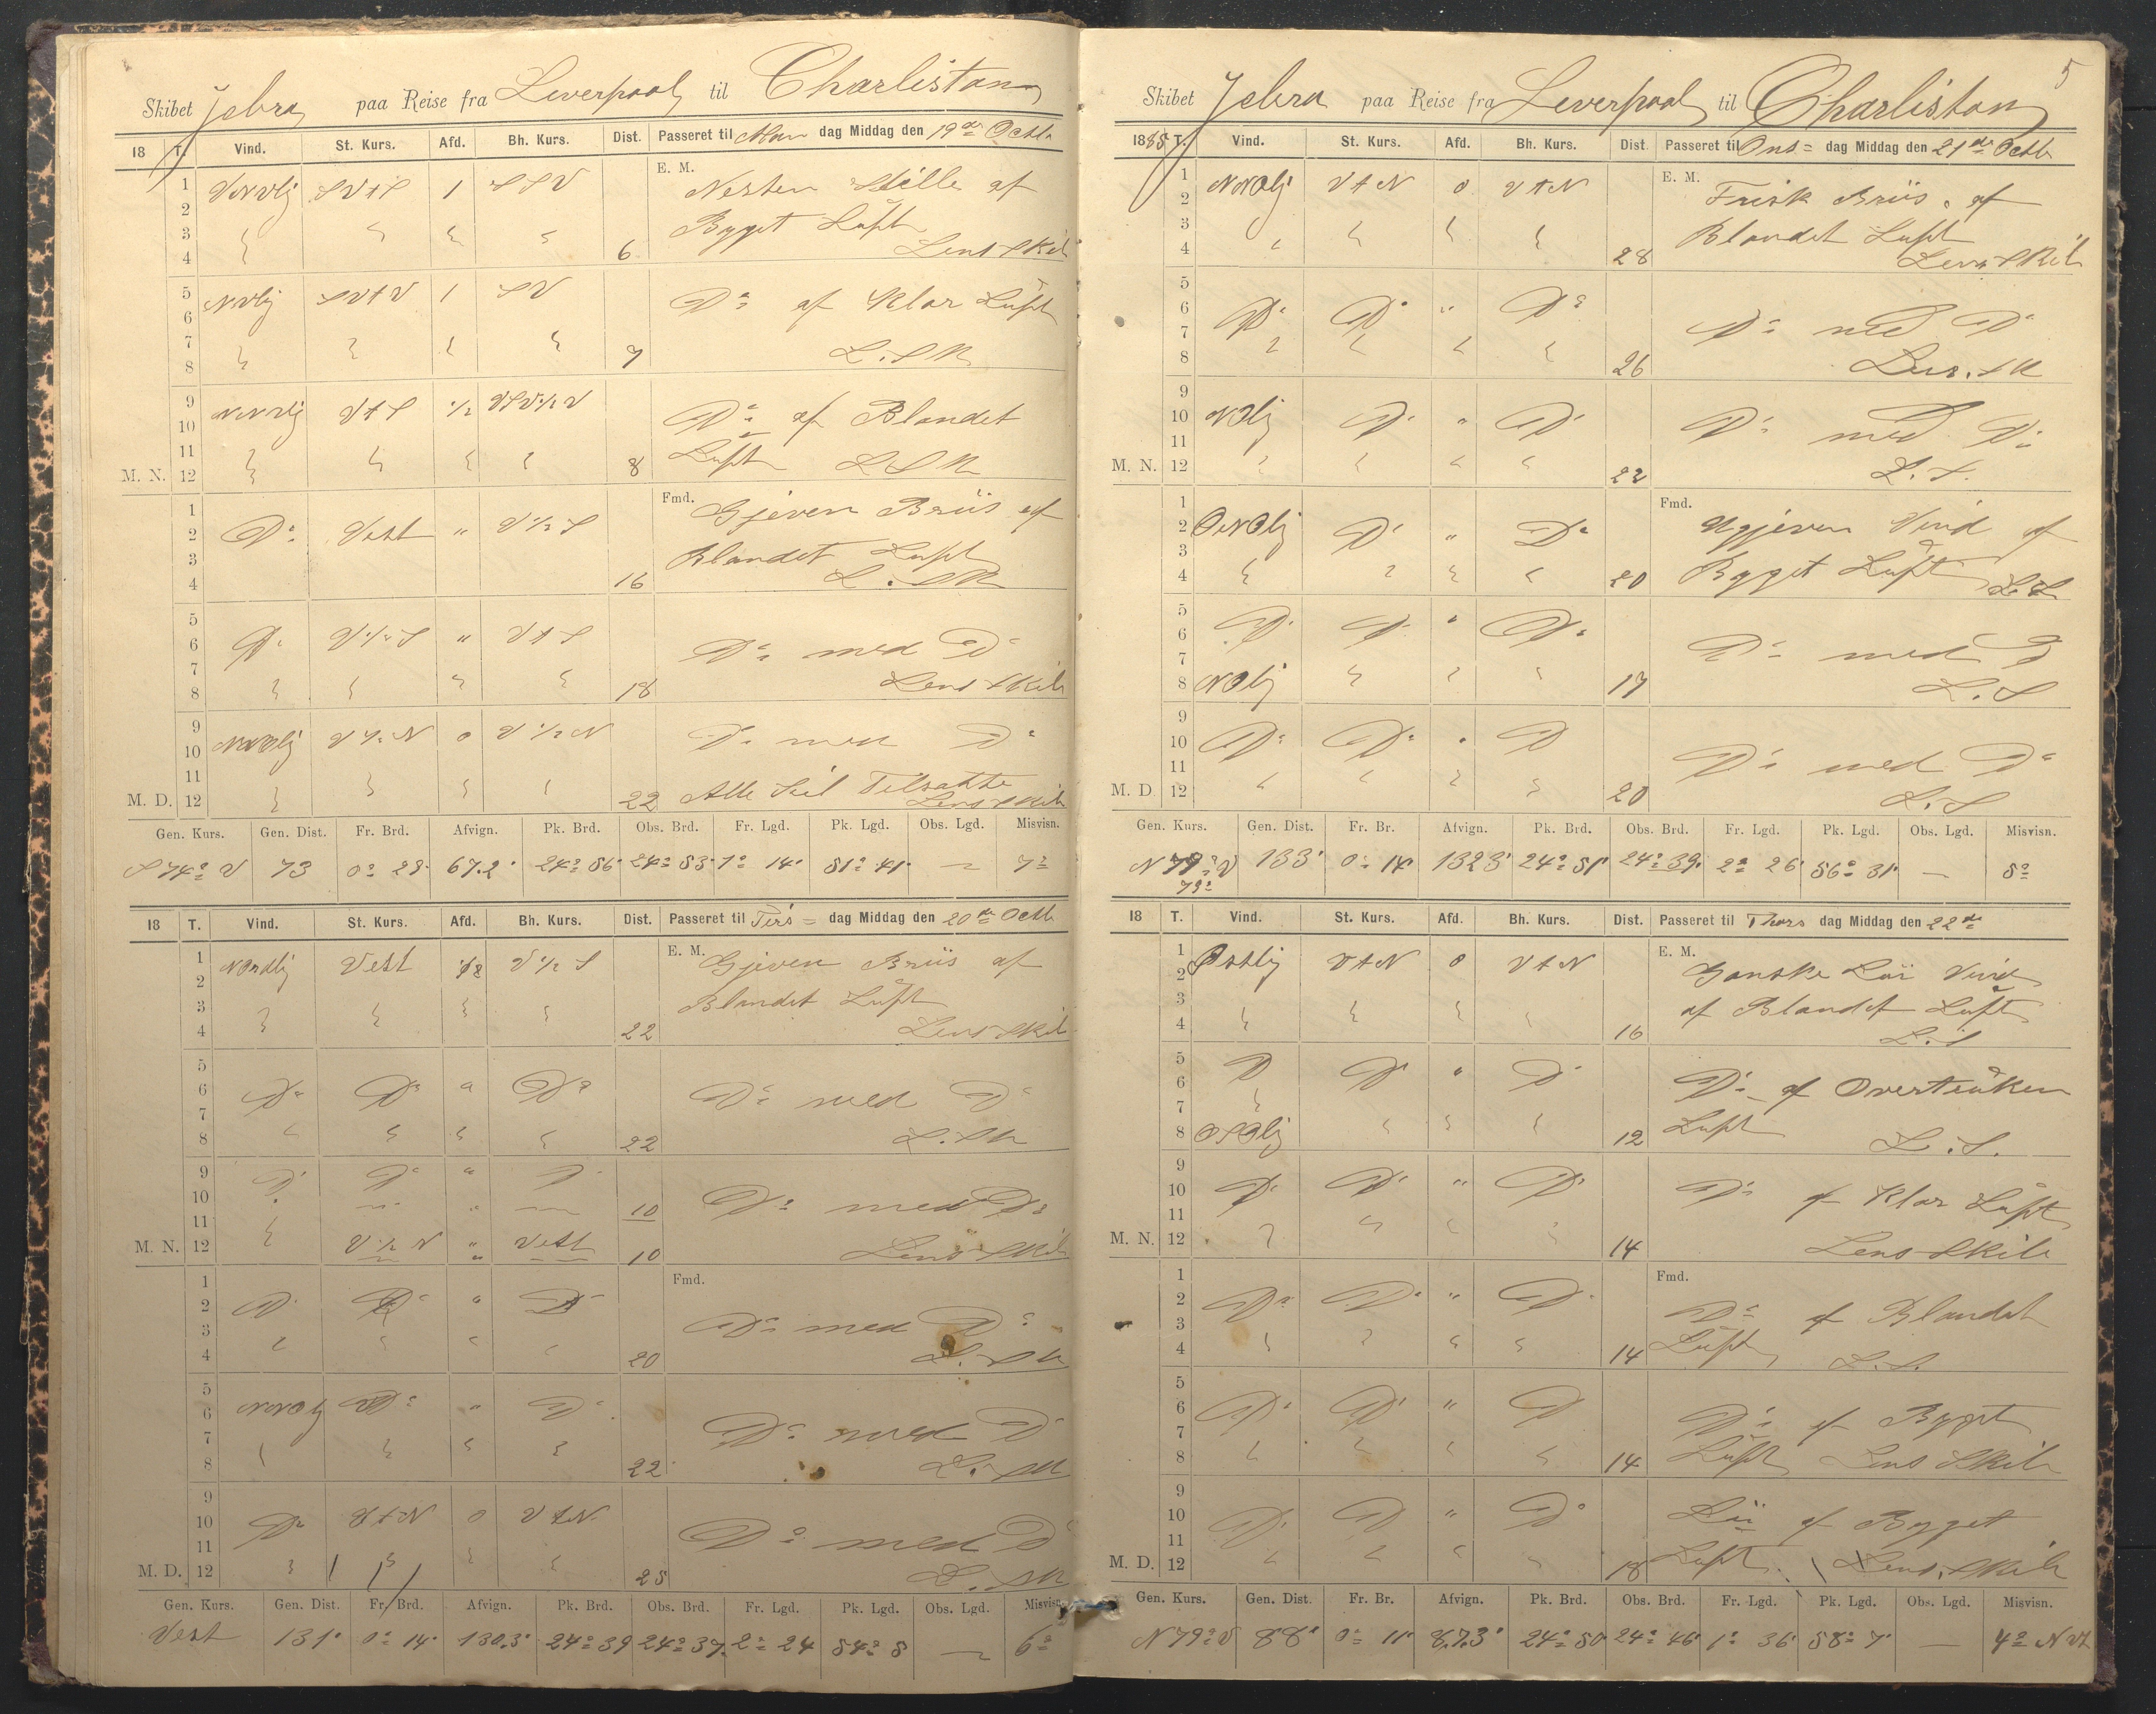 Skibet Jebra paa Reise fra Leverpool til Charliston
18 T. Vind. St. Kurs. Afd. Bh. Kurs. Dist. Passeret til Man dag Middag den 19de Octb
1 2 3 4 VNVlj SVtS 1 SSV 6 E. M. Nesten Stille af
Bygget Luft
Lens Skib
5 6 7 8 NVlj SVtV 1 SV 7 Do af Klar Luft
L. Sk
9 10 11 M. N. 12 NNVlj VtS ½ VSV½V 8 Do af Blandet
Luft L Sk
1 2 3 4 Do Vest " V½S 16 Fmd. Gjeven Briis af
Blandet Luft
L. Sk
5 6 7 8 Do V½S " VtS 18 Do med Do
Lens Skib
9 10 11 M. D. 12 NNOlj V½N 0 V½N 22 Do med Do
Alle Seil Tilsatte
Lens Skib
Gen. Kurs. Gen. Dist. Fr. Brd. Afvign. Pk. Brd. Obs. Brd. Fr. Lgd. Pk. Lgd. Obs. Lgd. Misvisn.
S 74° V 73 0° 23' 67.2' 24° 56' 24° 53' 1° 14' 51° 41' — 7°
18 T. Vind. St. Kurs. Afd. Bh. Kurs. Dist. Passeret til Tirs = dag Middag den 20de Octb
1 2 3 4 Nordlij Vest ½ V½S 22 E. M. Gjeven Briis af
Blandet Luft
Lens Skib
5 6 7 8 Do Do " Do 22 Do med Do
L. Sk
9 10 Do Do " Do 10 Do med Do
11 M. N. 12 V½N " Vest 10 Lens Skib
1 2 3 4 Do Do " Do 20 Fmd. Do med Do
L. Sk
5 6 7 8 NNOlj Do " Do 22 Do med Do
L. Sk
9 10 11 M. D. 12 Do VtN 0 VtN 25 Do med Do
L. Sk
Gen. Kurs. Gen. Dist. Fr. Brd. Afvign. Pk. Brd. Obs. Brd. Fr. Lgd. Pk. Lgd. Obs. Lgd. Misvisn.
Vest 131' 0° 14' 130.3' 24° 39 24° 37' 2° 24 54° 5 — 6°
5
Skibet Jebra paa Reise fra Leverpool til Charliston
1885 T. Vind. St. Kurs. Afd. Bh. Kurs. Dist. Passeret til Ons = dag Middag den 21de Octb
1 2 3 4 NNOlj VtN 0 VtN 28 E. M. Frisk Briis af
Blandet Luft
Lens Skib
5 6 7 8 Do Do " Do 26 Do med Do
Lens. Sk
9 10 11 M. N. 12 NOlj Do " Do 22 Do med Do
L. S.
1 2 3 4 ONOlj Do " Do 20 Fmd. Ugjeven Vind af
Bygget Luft L. S
5 6 7 Do Do " Do Do med Do
8 NOlj 17 L. S
9 10 11 M. D. 12 Do Do " Do 20 Do med Do
L. S
Gen. Kurs. Gen. Dist. Fr. Br. Afvign. Pk. Brd. Obs. Brd. Fr. Lgd. Pk. Lgd. Obs. Lgd. Misvisn.
N 79° V 133' 0° 14' 132.3' 24° 51' 24° 39' 2° 26' 56° 31' — 5°
79°
18 T. Vind. St. Kurs. Afd. Bh. Kurs. Dist. Passeret til Thors dag Middag den 22de
1 2 3 4 Østlig VtN 0 VtN 16 E. M. Ganske Lør Vind
af Blandet Luft
L. S
5 6 7 Do Do " Do Do af Overtrukken
8 OSOlj 12 Luft L. S.
9 10 11 M. N. 12 Do Do " Do 14 Do af Klar Luft
Lens Skib
1 2 3 4 Do Do " Do 14 Fmd. Do af Blandet
Luft L. S.
5 6 7 8 Do Do " Do 14 Do af Bygget
Luft Lens Skib
9 10 11 M. D. 12 Do Do " Do 18 Lør af Bygget
Luft. Lens Skib
Gen. Kurs. Gen. Dist. Fr. Br. Afvign. Pk. Brd. Obs. Brd. Fr. Lgd. Pk. Lgd. Obs. Lgd. Misvisn.
N 79° V 88' 0° 11' 87.3' 24° 50' 24° 46' 1° 36' 58° 7' — 4° N Vt